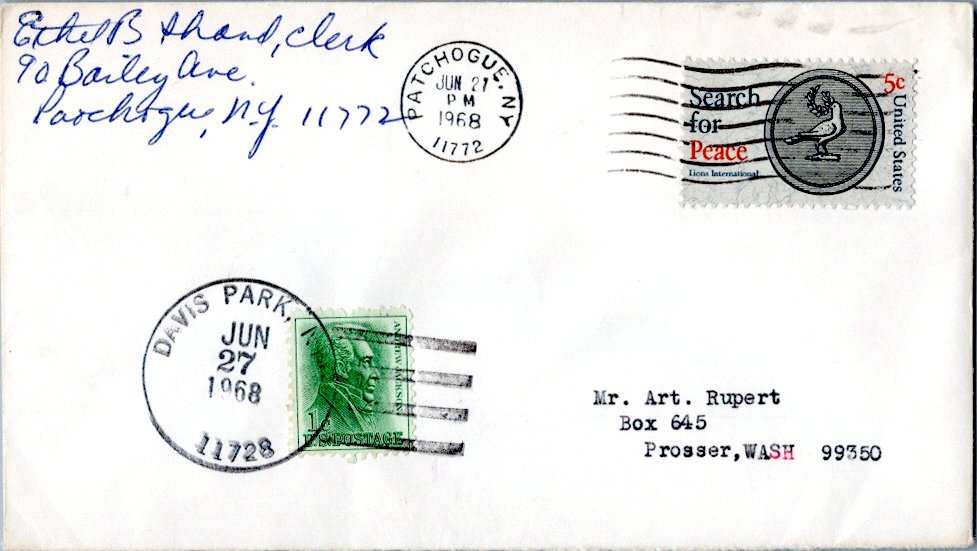 Ethel B Strand, Clerk
90 Bailey Ave.
Patchogue, N.Y. 11772
PATCHOGUE, NY
JUN 27
PM
1968
11772
Search
for
Peace
Lions International
5c
United States
DAVIS PARK, N
JUN
27
1968
11728
ANDREW JACKSON
1c
U.S. POSTAGE
Mr. Art. Rupert
Box 645
Prosser,WASH 99350